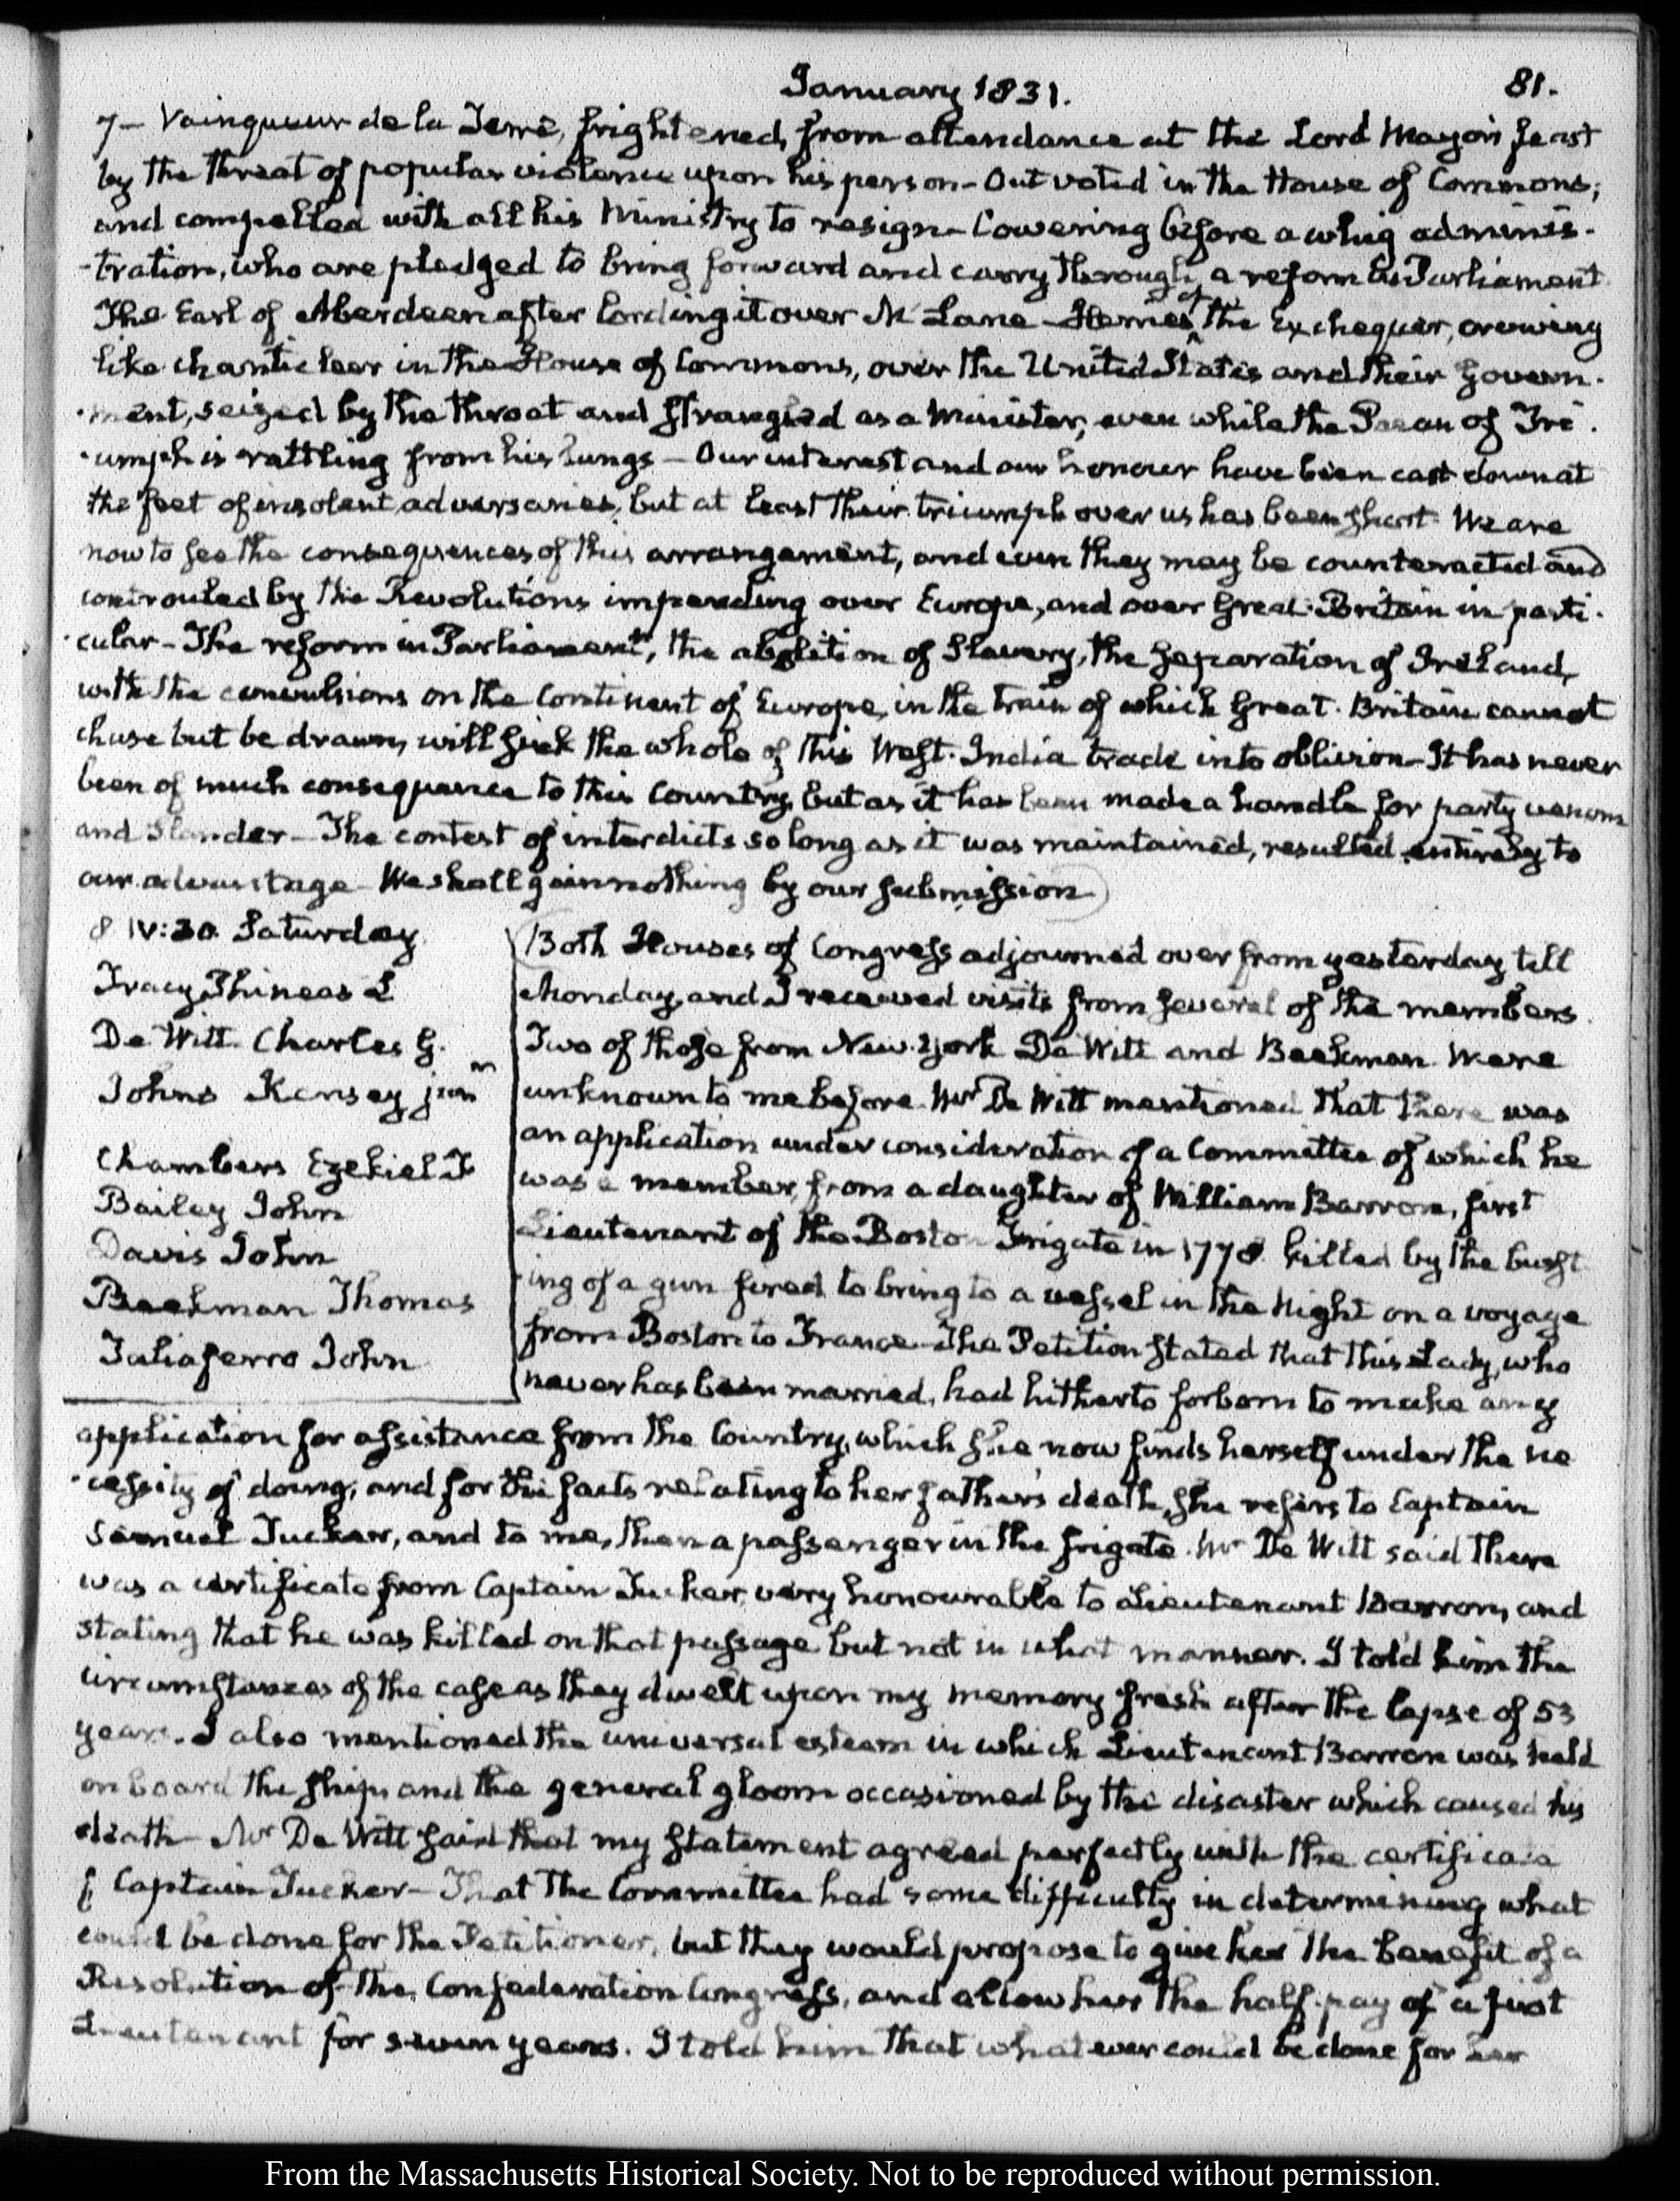 January 1831.
81.
7- Vainqueur de la Terre, frightened from attendance at the Lord Mayor's feast
by the threat of popular violence upon his person- Out voted in the House of Commons;
and compelled with all his Ministry to resign- Cowering before a whig adminis-
-tration, who are pledged to bring forward and carry through a reform in Parliament
The Earl of Aberdeen after lording it over McLane- Herries of the Exchequer, crowing
like chanticleer in the House of Commons, over the United States and their Govern-
-ment, seized by the throat and strangled as a Minister, even while the Paean of Tri-
-umph is rattling from his lungs- Our interest and our honour have been cast down at
the feet of insolent adversaries, but at least their triumph over us has been short. We are
now to see the consequences of this arrangement, and even they may be counteracted and
controuled by the Revolutions impending over Europe, and over Great-Britain in parti-
-cular- The reform in Parliament, the abolition of Slavery, the separation of Ireland,
with the convulsions on the Continent of Europe, in the train of which Great-Britain cannot
chuse but be drawn, will sink the whole of this West-India trade into oblivion- It has never
been of much consequence to this Country, but as it has been made a handle for party venom
and Slander- The contest of interdicts so long as it was maintained, resulted entirely to
our advantage- We shall gain nothing by our submission
8 IV:30. Saturday
Tracy Phineas L
De Witt. Charles G.
Johns Kensey junr
Chambers Ezekiel F
Bailey John
Davis John
Beekman Thomas
Taliaferro John
Both Houses of Congress adjourned over from yesterday till
Monday, and I received visits from several of the members.
Two of those from New-York De Witt and Beekman were
unknown to me before. Mr De Witt mentioned that there was
an application under consideration of a Committee of which he
was a member, from a daughter of William Barron, first
Lieutenant of the Boston Frigate in 1778. killed by the burst-
-ing of a gun fired to bring to a vessel in the Night on a voyage
from Boston to France- The Petition stated that this Lady, who
never has been married, had hitherto forborn to make any
application for assistance from the Country, which she now finds herself under the ne
-cessity of doing, and for the facts relating to her father's death, she refers to Captain
Samuel Tucker, and to me, then a passenger in the frigate. Mr De Witt said there
was a certificate from Captain Tucker very honourable to Lieutenant Barron, and
stating that he was killed on that passage but not in what manner. I told him the
circumstances of the case as they dwelt upon my memory fresh after the lapse of 53
years. I also mentioned the universal esteem in which Lieutenant Barron was held
on board the ship, and the general gloom occasioned by the disaster which caused his
death- Mr De Witt said that my statement agreed perfectly with the certificate
of Captain Tucker- That the Committee had some difficulty in determining what
could be done for the Petitioner, but they would propose to give her the benefit of a
Resolution of the Confederation Congress, and allow her the half-pay of a first
Lieutenant for seven years. I told him that whatever could be done for her
From the Massachusetts Historical Society. Not to be reproduced without permission.